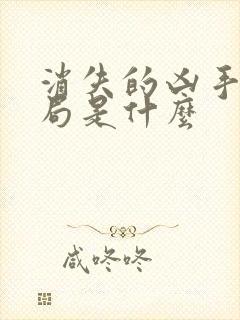 消失的凶手
局是什麼
咸咚咚